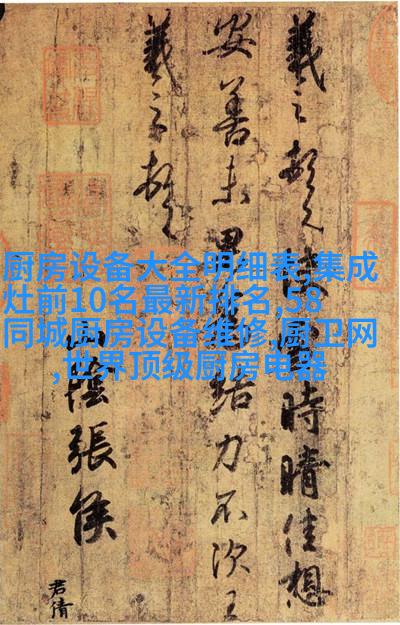 厨房设备大全明细表,集成
灶前10名最新排名,58
同城厨房设备维修,厨卫网
,世界顶级厨房电器
羲之頓首快雪時晴佳想
安善未果為結力不次王
羲之頓首
山陰張侯
君倩